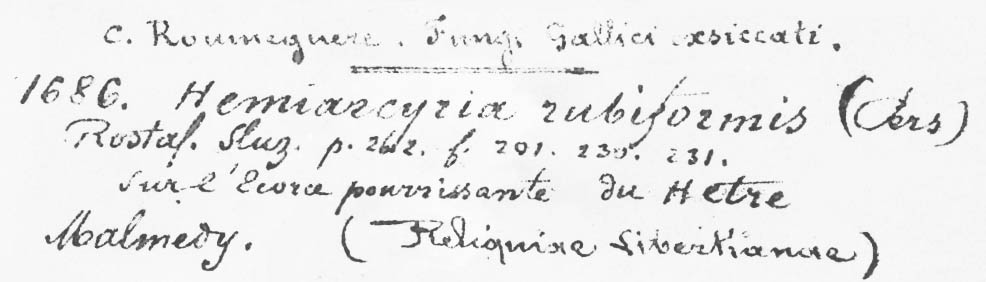 C. Roumeguere. Fungi Gallici exsiccati.
1686. Hemiarcyria rubiformis (Pers)
Rostaf. Sluz. p. 262. f. 201. 230. 231.
sur l'Ecorce pourrissante du Hetre
Malmedy. (Reliquiae Libertianae)